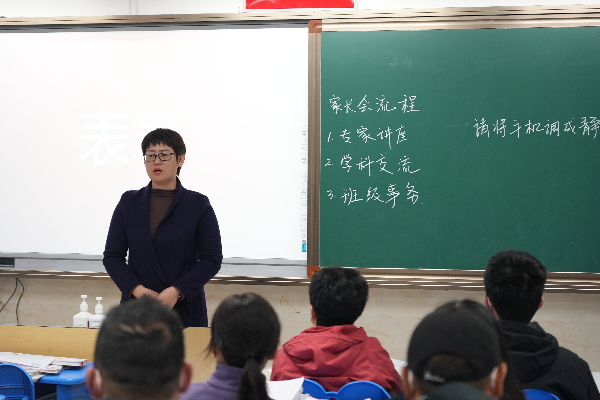 表彰
家长会流程
1. 专家讲座
2. 学科交流
3. 班级事务
请将手机调成静